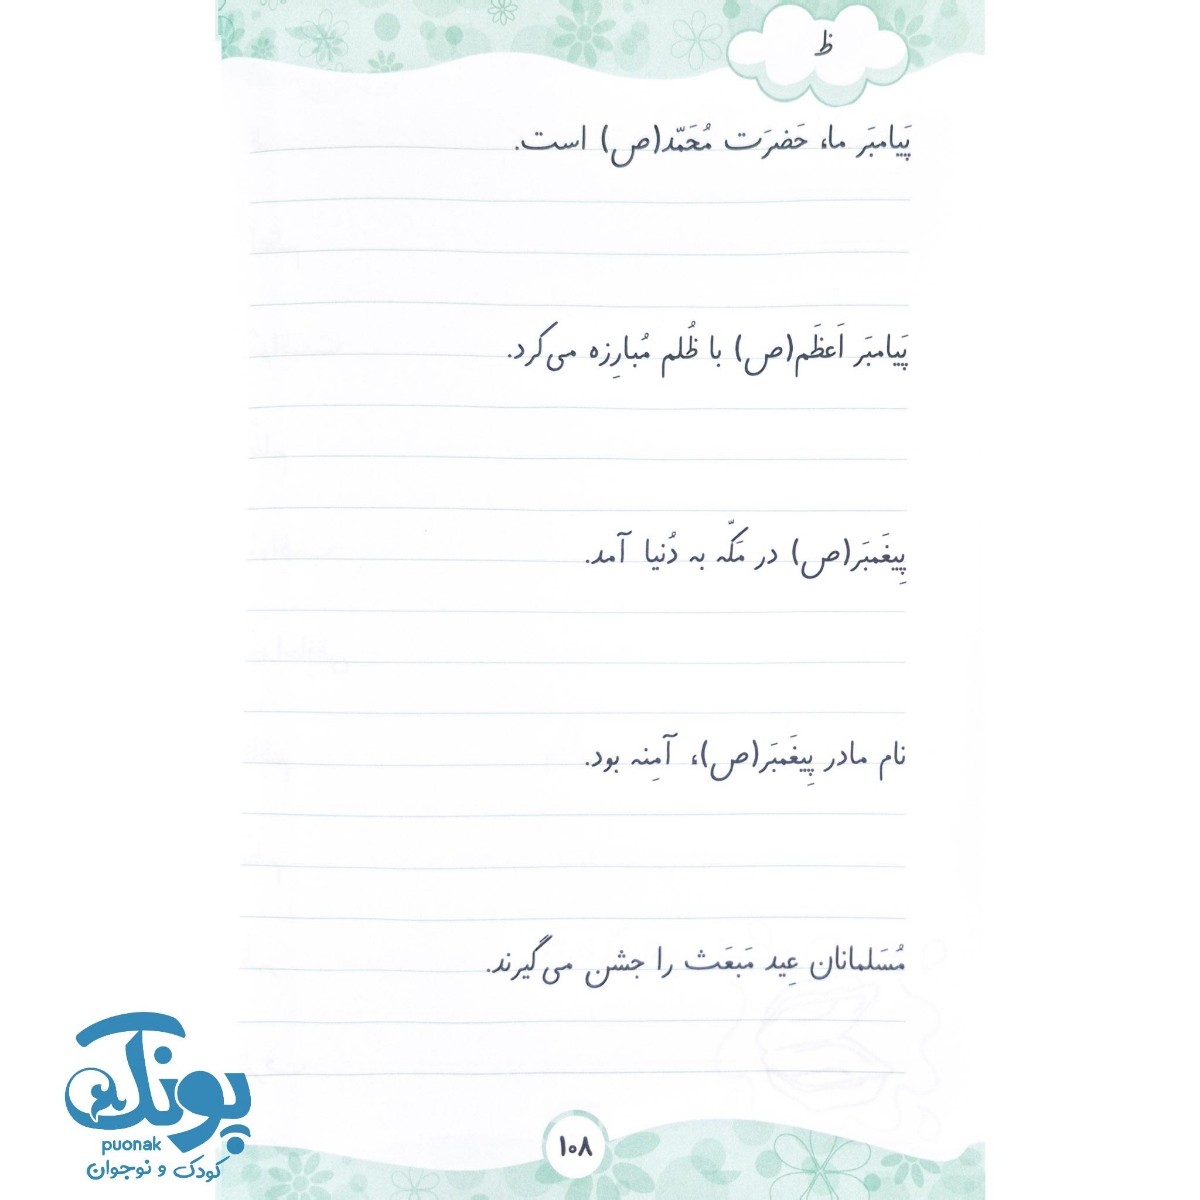 ظ
پَیامبَر ما، حَضرَت مُحَمّد(ص) است.
پَیامبَر اَعظَم(ص) با ظُلم مُبارِزه می‌کرد.
پِیغَمبَر(ص) در مَکّه به دُنیا آمد.
نام مادر پِیغَمبَر(ص)، آمِنه بود.
مُسَلمانان عِید مَبعَث را جشن می‌گیرند.
پونک
puonak
کودک و نوجوان
۱۰۸